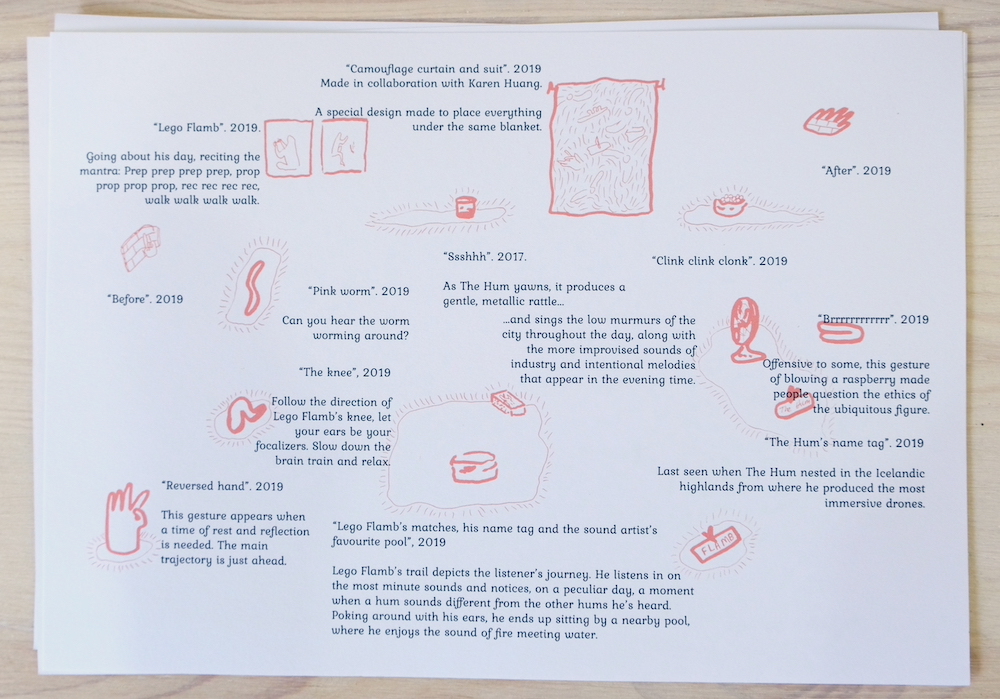 “Camouflage curtain and suit”. 2019
Made in collaboration with Karen Huang.
A special design made to place everything
under the same blanket.
“Lego Flamb”. 2019.
Going about his day, reciting the
mantra: Prep prep prep prep, prop
prop prop prop, rec rec rec rec,
walk walk walk walk.
“After”. 2019
“Before”. 2019
“Pink worm”. 2019
Can you hear the worm
worming around?
“Ssshhh”. 2017.
As The Hum yawns, it produces a
gentle, metallic rattle...
“Clink clink clonk”. 2019
...and sings the low murmurs of the
city throughout the day, along with
the more improvised sounds of
industry and intentional melodies
that appear in the evening time.
“Brrrrrrrrrrrr”. 2019
Offensive to some, this gesture
of blowing a raspberry made
people question the ethics of
the ubiquitous figure.
THE HUM
“The knee”, 2019
Follow the direction of
Lego Flamb’s knee, let
your ears be your
focalizers. Slow down the
brain train and relax.
“The Hum’s name tag”. 2019
Last seen when The Hum nested in the Icelandic
highlands from where he produced the most
immersive drones.
“Reversed hand”. 2019
This gesture appears when
a time of rest and reflection
is needed. The main
trajectory is just ahead.
“Lego Flamb’s matches, his name tag and the sound artist’s
favourite pool”, 2019
FLAMB
Lego Flamb’s trail depicts the listener’s journey. He listens in on
the most minute sounds and notices, on a peculiar day, a moment
when a hum sounds different from the other hums he’s heard.
Poking around with his ears, he ends up sitting by a nearby pool,
where he enjoys the sound of fire meeting water.